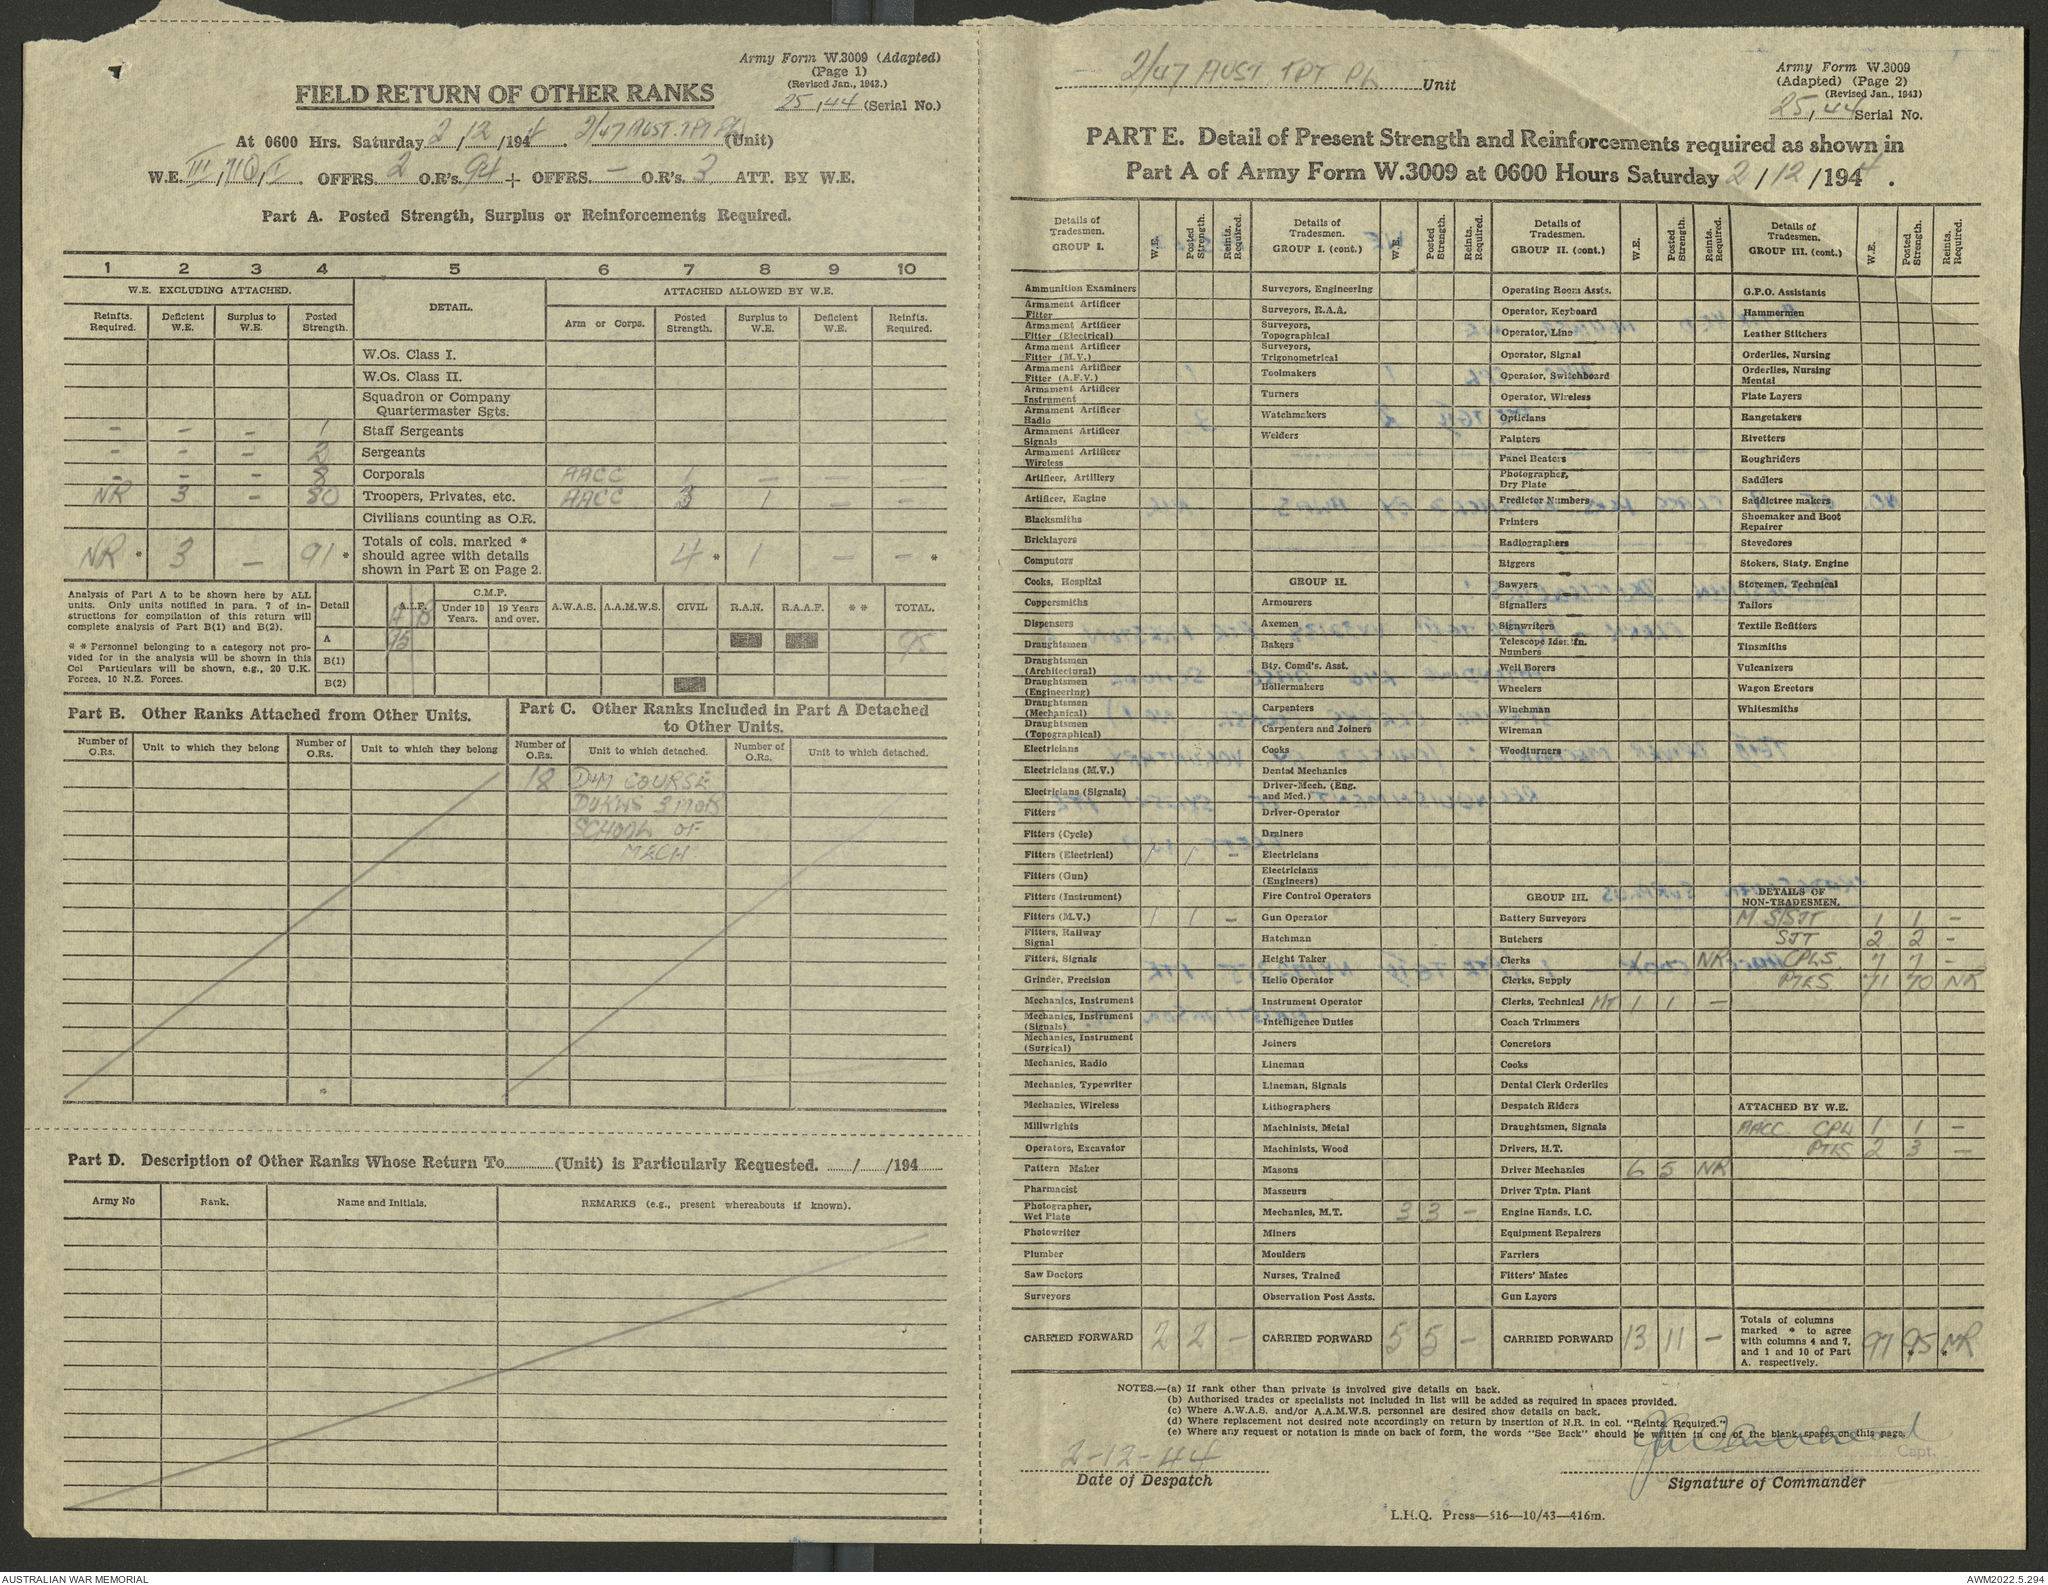 Army Form W.3009 (Adapted)
(Page 1)
(Revised Jan., 1942.)
25, 44 (Serial No.)
FIELD RETURN OF OTHER RANKS
At 0600 Hrs. Saturday 2/12/1944. 2/47 AUST. TPT PL (Unit)
W.E. OFFRS. 2 O.R's. 94 + OFFRS. – O.R's. 3 ATT. BY W.E.
Part A. Posted Strength, Surplus or Reinforcements Required.
1 2 3 4 5 6 7 8 9 10
W.E. EXCLUDING ATTACHED. DETAIL. ATTACHED ALLOWED BY W.E.
Reinfts. Required. Deficient W.E. Surplus to W.E. Posted Strength. Arm or Corps. Posted Strength. Surplus to W.E. Deficient W.E. Reinfts. Required.
W.Os. Class I.
W.Os. Class II.
Squadron or Company
Quartermaster Sgts.
– – – 1 Staff Sergeants
– – – 2 Sergeants
– – – 8 Corporals AACC 1 – – –
NR 3 – 80 Troopers, Privates, etc. AACC 3 1 – –
Civilians counting as O.R.
NR * 3 – 91 * Totals of cols. marked * should agree with details shown in Part E on Page 2. 4 * 1 – – *
Analysis of Part A to be shown here by ALL
units. Only units notified in para. 7 of in-
structions for compilation of this return will
complete analysis of Part B(1) and B(2).
* * Personnel belonging to a category not pro-
vided for in the analysis will be shown in this
Col Particulars will be shown, e.g., 20 U.K.
Forces, 10 N.Z. Forces.
Detail A.I.F. C.M.F. Under 19 Years. 19 Years and over. A.W.A.S. A.A.M.W.S. CIVIL R.A.N. R.A.A.F. * * TOTAL.
A 95 95
B(1)
B(2)
Part B. Other Ranks Attached from Other Units.
Number of O.Rs. Unit to which they belong Number of O.Rs. Unit to which they belong
Part C. Other Ranks Included in Part A Detached
to Other Units.
Number of O.Rs. Unit to which detached. Number of O.Rs. Unit to which detached.
18 D&M COURSE
DUKWS 3 MOB
SCHOOL OF
MECH
Part D. Description of Other Ranks Whose Return To (Unit) is Particularly Requested. / /194
Army No Rank. Name and Initials. REMARKS (e.g., present whereabouts if known).
2/47 AUST TPT PL Unit
Army Form W.3009
(Adapted) (Page 2)
(Revised Jan., 1943)
25, 44 Serial No.
PART E. Detail of Present Strength and Reinforcements required as shown in
Part A of Army Form W.3009 at 0600 Hours Saturday 2/12/1944.
Details of Tradesmen. GROUP I. W.E. Posted Strength. Reints. Required.
Ammunition Examiners
Armament Artificer Fitter
Armament Artificer Fitter (Electrical)
Armament Artificer Fitter (M.V.)
Armament Artificer Fitter (A.F.V.)
Armament Artificer Instrument
Armament Artificer Radio
Armament Artificer Signals
Armament Artificer Wireless
Artificer, Artillery
Artificer, Engine
Blacksmiths
Bricklayers
Computors
Cooks, Hospital
Coppersmiths
Dispensers
Draughtsmen
Draughtsmen (Architectural)
Draughtsmen (Engineering)
Draughtsmen (Mechanical)
Draughtsmen (Topographical)
Electricians
Electricians (M.V.)
Electricians (Signals)
Fitters
Fitters (Cycle)
Fitters (Electrical) 1 1 –
Fitters (Gun)
Fitters (Instrument)
Fitters (M.V.) 1 1 –
Fitters, Railway Signal
Fitters, Signals
Grinder, Precision
Mechanics, Instrument
Mechanics, Instrument (Signals)
Mechanics, Instrument (Surgical)
Mechanics, Radio
Mechanics, Typewriter
Mechanics, Wireless
Millwrights
Operators, Excavator
Pattern Maker
Pharmacist
Photographer, Wet Plate
Photowriter
Plumber
Saw Doctors
Surveyors
CARRIED FORWARD 2 2 –
Details of Tradesmen. GROUP I. (cont.) W.E. Posted Strength. Reints. Required.
Surveyors, Engineering
Surveyors, R.A.A.
Surveyors, Topographical
Surveyors, Trigonometrical
Toolmakers
Turners
Watchmakers
Welders
GROUP II.
Armourers
Axemen
Bakers
Bty. Comd's. Asst.
Boilermakers
Carpenters
Carpenters and Joiners
Cooks
Dental Mechanics
Driver-Mech. (Eng. and Med.)
Driver-Operator
Drainers
Electricians
Electricians (Engineers)
Fire Control Operators
Gun Operator
Hatchman
Height Taker
Helio Operator
Instrument Operator
Intelligence Duties
Joiners
Lineman
Lineman, Signals
Lithographers
Machinists, Metal
Machinists, Wood
Masons
Masseurs
Mechanics, M.T. 3 3 –
Miners
Moulders
Nurses, Trained
Observation Post Assts.
CARRIED FORWARD 5 5 –
Details of Tradesmen. GROUP II. (cont.) W.E. Posted Strength. Reints. Required.
Operating Room Assts.
Operator, Keyboard
Operator, Line
Operator, Signal
Operator, Switchboard
Operator, Wireless
Opticians
Painters
Panel Beaters
Photographer, Dry Plate
Predictor Numbers
Printers
Radiographers
Riggers
Sawyers
Signallers
Signwriters
Telescope Identfn. Numbers
Well Borers
Wheelers
Winchman
Wireman
Woodturners
GROUP III.
Battery Surveyors
Butchers
Clerks 1 – NR
Clerks, Supply
Clerks, Technical MT 1 1 –
Coach Trimmers
Concretors
Cooks
Dental Clerk Orderlies
Despatch Riders
Draughtsmen, Signals
Drivers, H.T.
Driver Mechanics 6 5 NR
Driver Tptn. Plant
Engine Hands, I.C.
Equipment Repairers
Farriers
Fitters' Mates
Gun Layers
CARRIED FORWARD 13 11 –
Details of Tradesmen. GROUP III. (cont.) W.E. Posted Strength. Reints. Required.
G.P.O. Assistants
Hammermen
Leather Stitchers
Orderlies, Nursing
Orderlies, Nursing Mental
Plate Layers
Rangetakers
Rivetters
Roughriders
Saddlers
Saddletree makers
Shoemaker and Boot Repairer
Stevedores
Stokers, Staty. Engine
Storemen, Technical
Tailors
Textile Refitters
Tinsmiths
Vulcanizers
Wagon Erectors
Whitesmiths
DETAILS OF NON-TRADESMEN.
M S/SJT 1 1 –
SJT 2 2 –
CPLS 7 7 –
PTES 71 70 NR
ATTACHED BY W.E.
AACC CPL 1 1 –
PTES 2 3 –
Totals of columns marked * to agree with columns 4 and 7, and 1 and 10 of Part A. respectively. 97 95 * NR *
NOTES.—(a) If rank other than private is involved give details on back.
(b) Authorised trades or specialists not included in list will be added as required in spaces provided.
(c) Where A.W.A.S. and/or A.A.M.W.S. personnel are desired show details on back.
(d) Where replacement not desired note accordingly on return by insertion of N.R. in col. "Reints. Required."
(e) Where any request or notation is made on back of form, the words "See Back" should be written in one of the blank spaces on this page.
2-12-44
Date of Despatch
Capt.
Signature of Commander
L.H.Q. Press—516—10/43—416m.
AUSTRALIAN WAR MEMORIAL
AWM2022.5.294